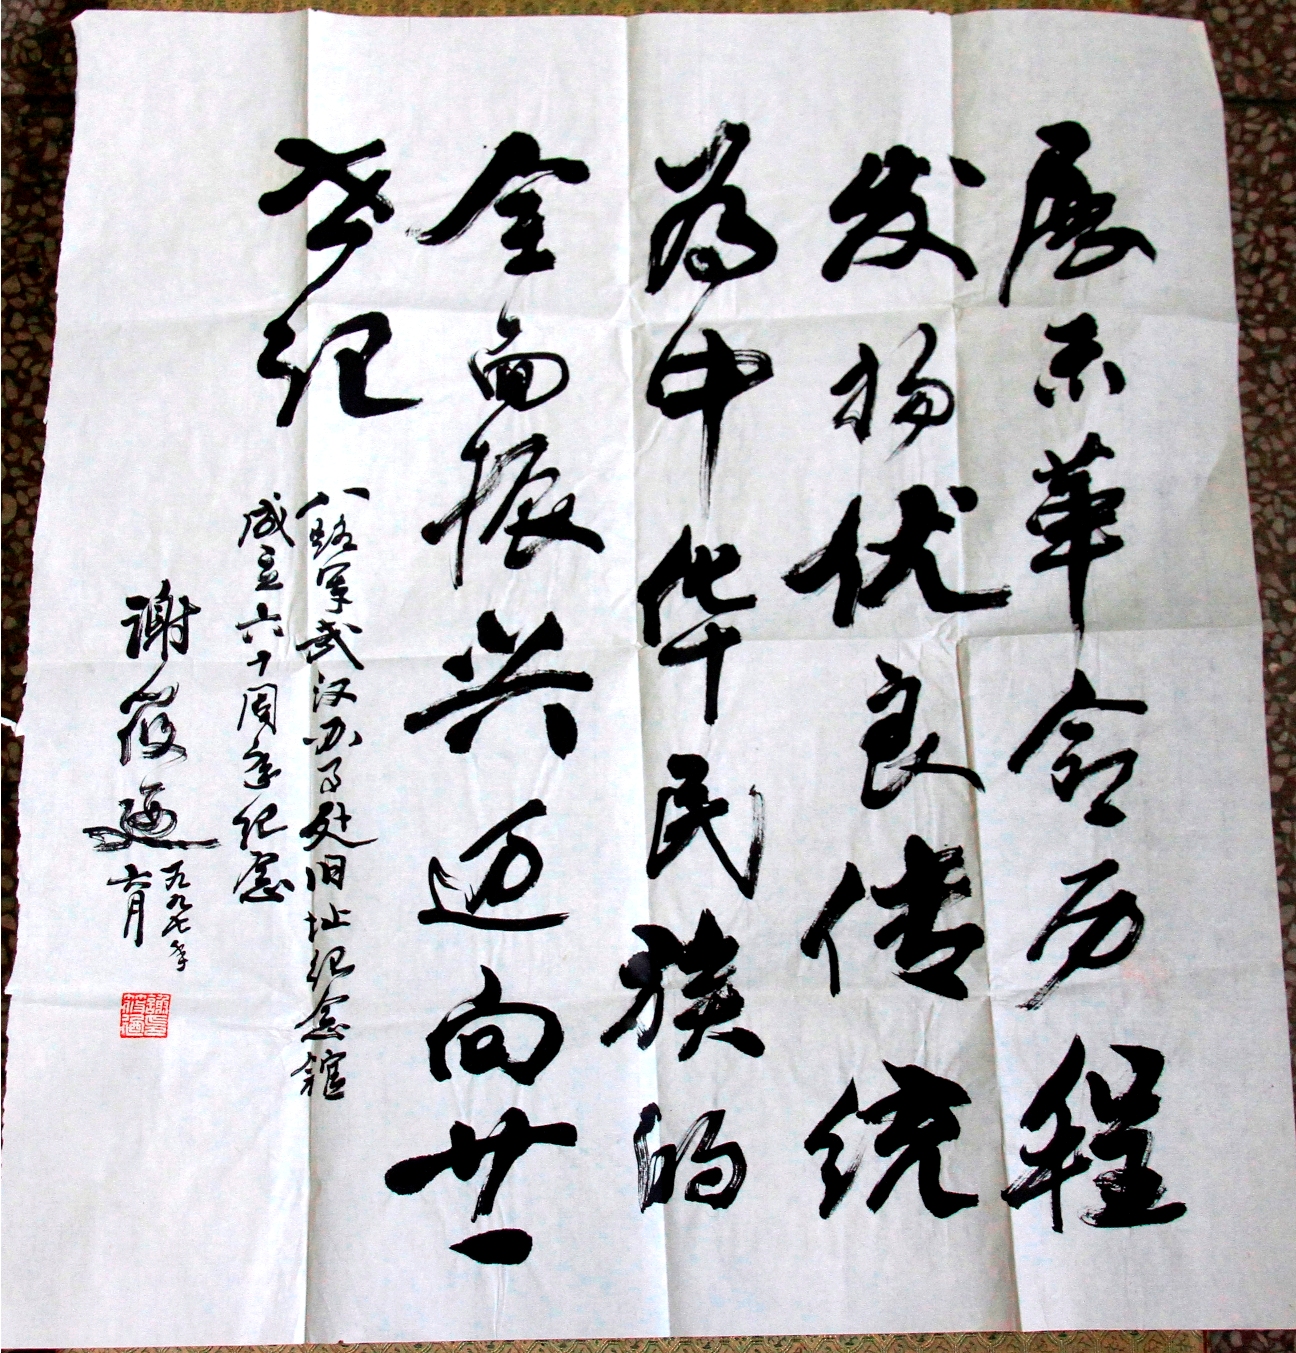 展示革命历程
发扬优良传统
为中华民族的
全面振兴迈向廿一
世纪
八路军武汉办事处旧址纪念馆
成立六十周年纪念
谢筱迺
一九九七年
六月